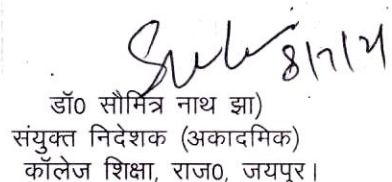 8/7/21
डॉ0 सौमित्र नाथ झा)
संयुक्त निदेशक (अकादमिक)
कॉलेज शिक्षा, राज0, जयपुर।